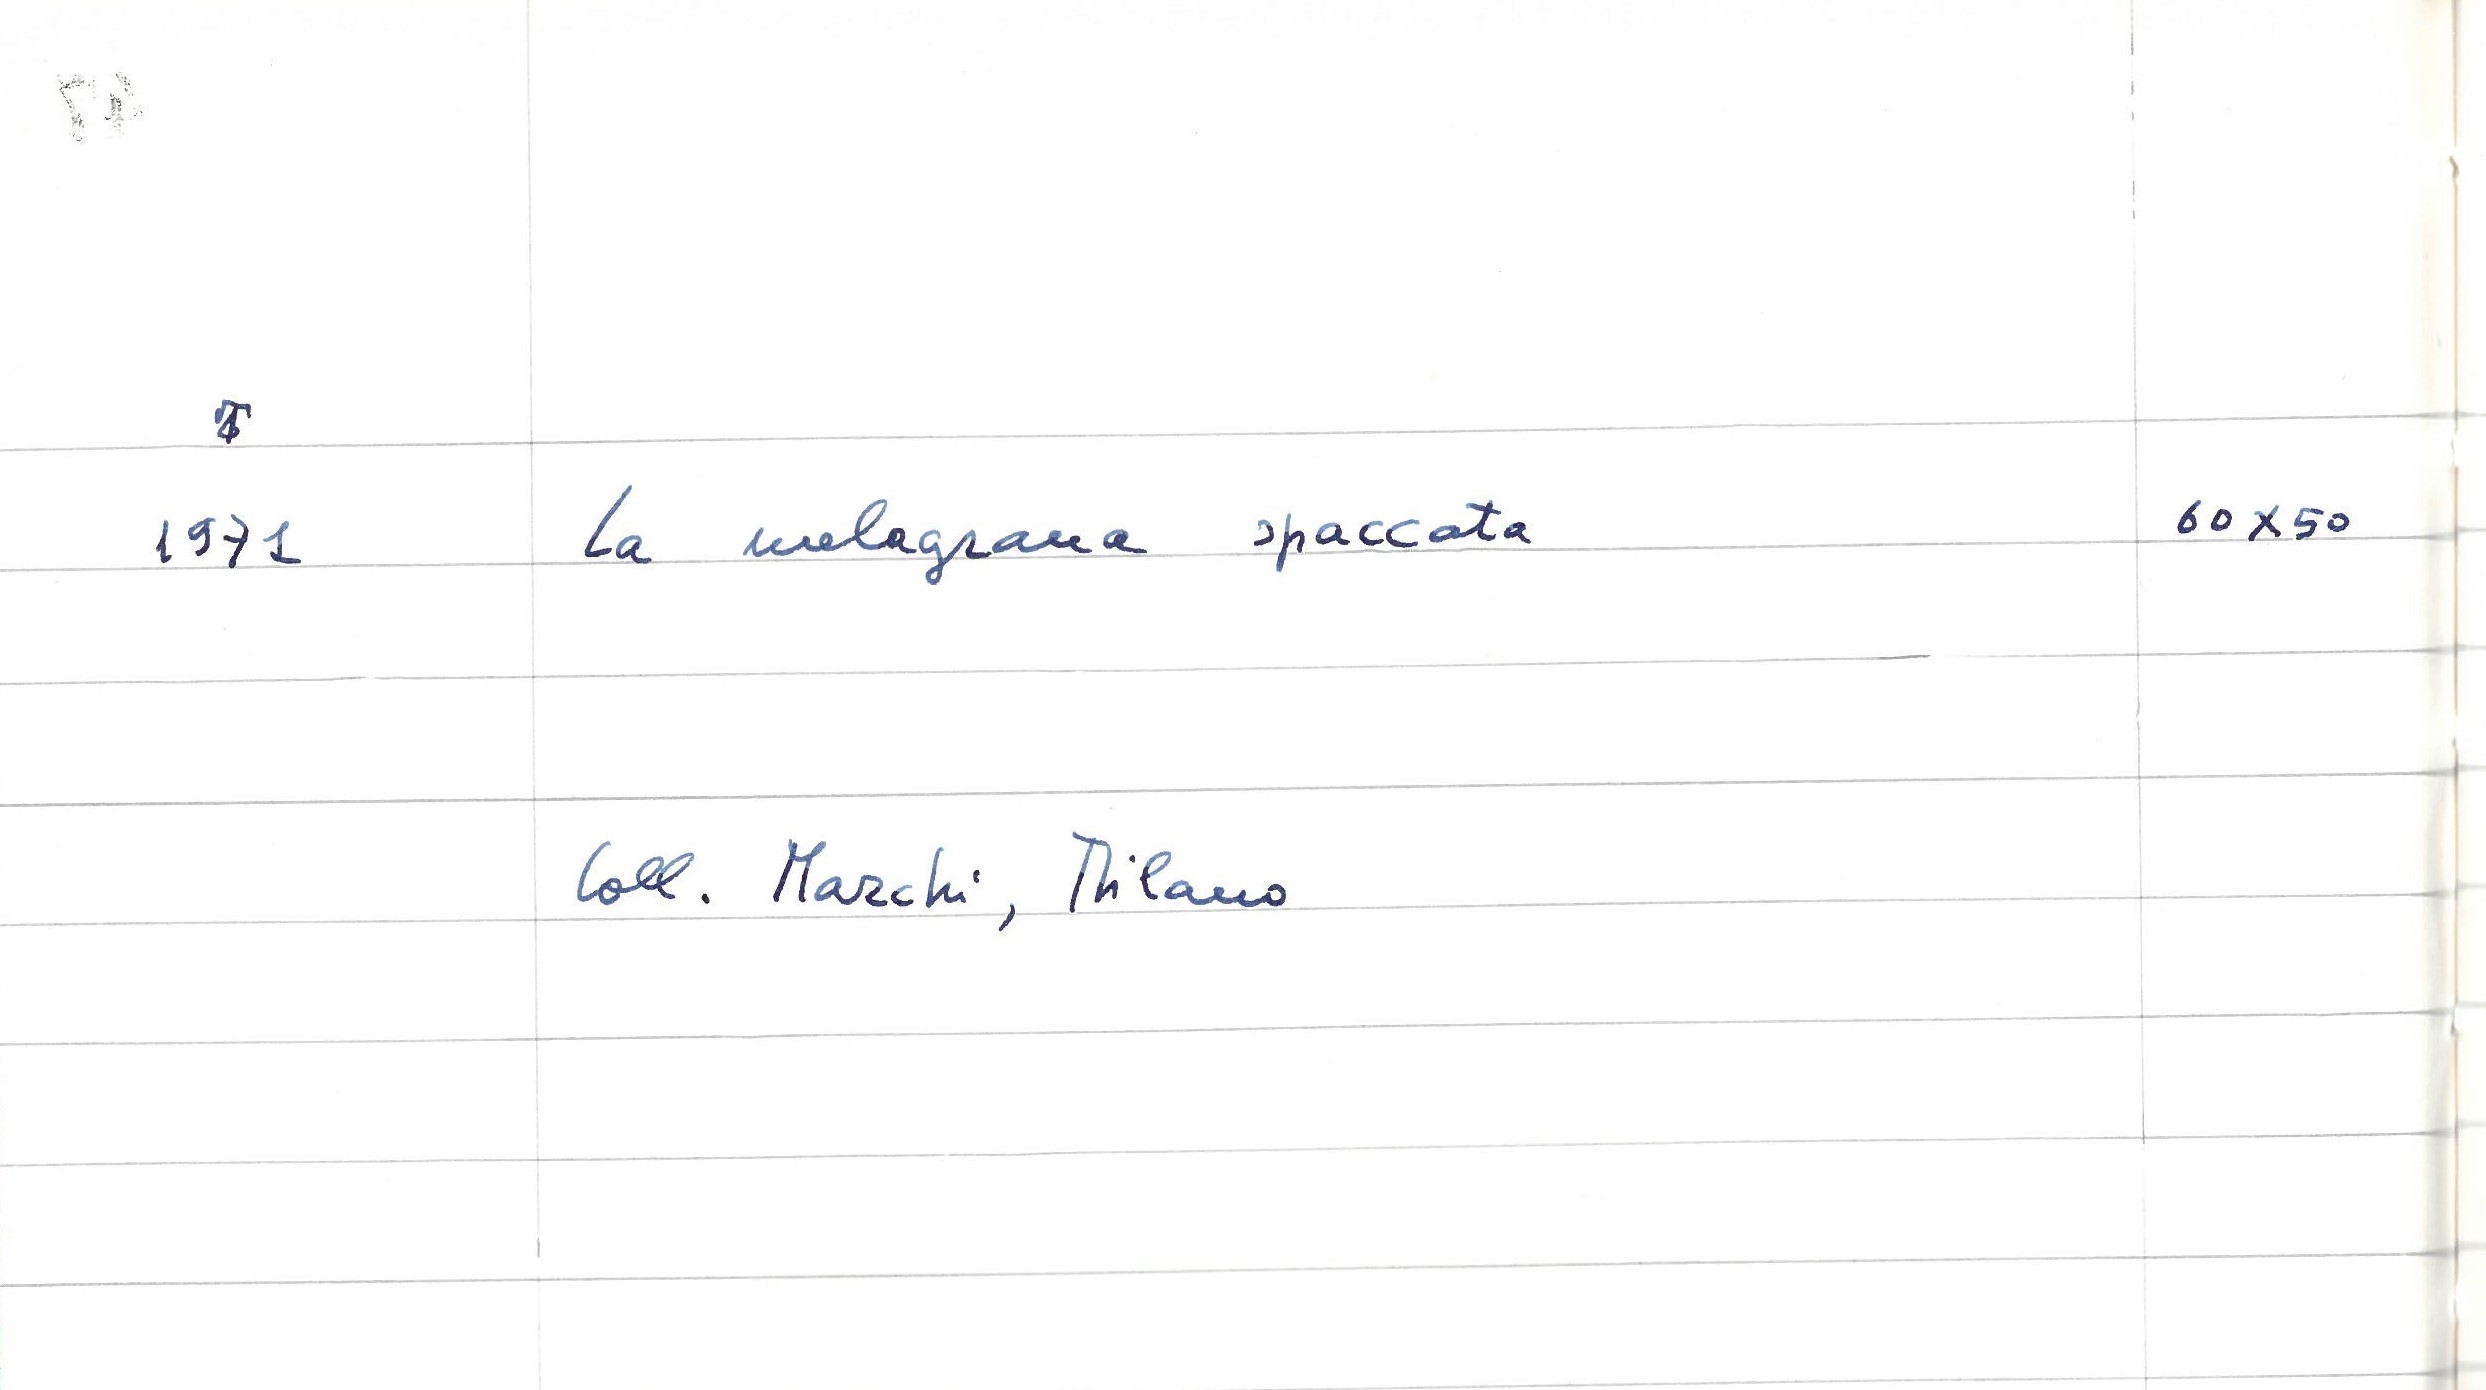 1971 La melagrana spaccata 60 x 50
Coll. Marchi, Milano